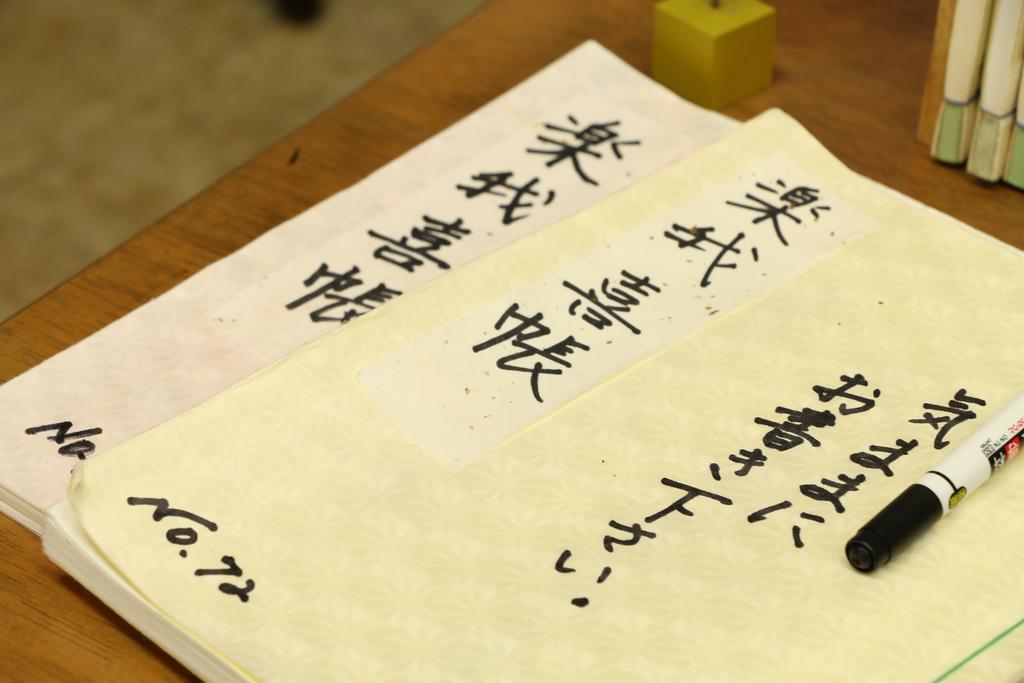 楽我喜帳
No.
楽我喜帳
気ままに
お書き
下さい.
No.72